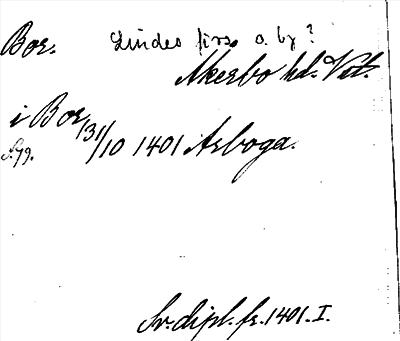 Bor. Lindes förs. o. by?
Åkerbo hd. Vstm.
i Bor 31/10 1401 Arboga.
S. 79.
Sv. dipl. fr. 1401. I.